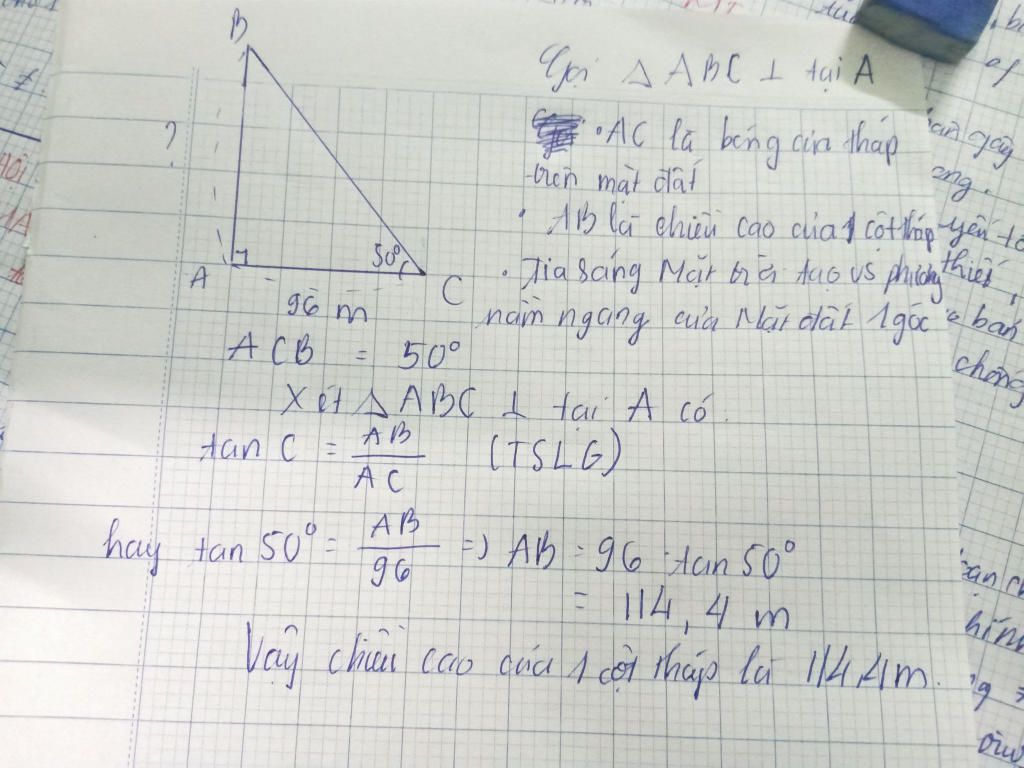 B
Gọi △ ABC ⊥ tại A
?
• AC là bóng của tháp
trên mặt đất
• AB là chiều cao của 1 cột tháp
50°
A
C
96 m
• Tia sáng Mặt trời tạo vs phương
nằm ngang của Mặt đất 1 góc
ACB = 50°
Xét △ ABC ⊥ tại A có.
tan C = AB / AC (TSLG)
hay tan 50° = AB / 96 => AB = 96 . tan 50°
= 114,4 m
Vậy chiều cao của 1 cột tháp là 114,4m.